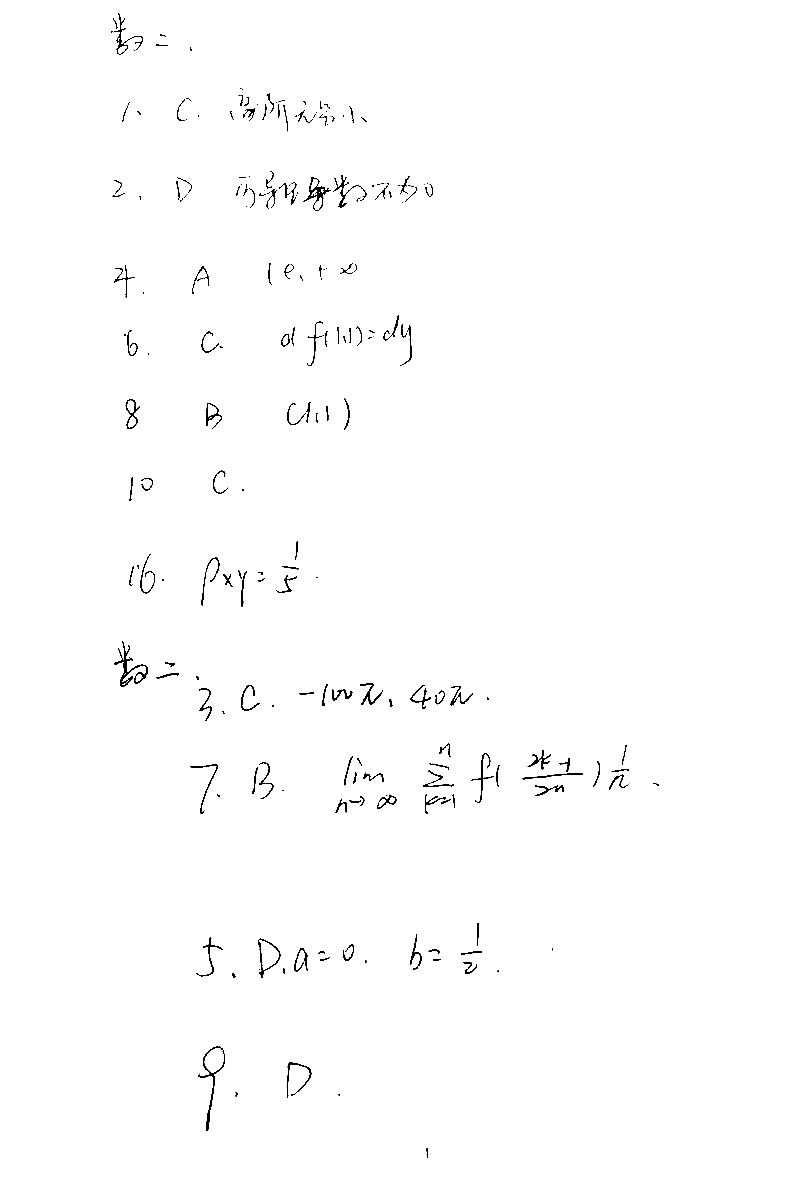 数二.
1. C. 高阶无穷小
2. D 可导且导数不为0
4. A (e, +∞
6. C. df(1,1)=dy
8 B (1,1)
10 C.
16. ρxy=1/5.
数二.
3. C. -100π, 40π.
7. B. lim n→∞ Σ k=1 n f( 2k-1/2n ) 1/n .
5. D. a=0. b=1/2.
9. D.
1